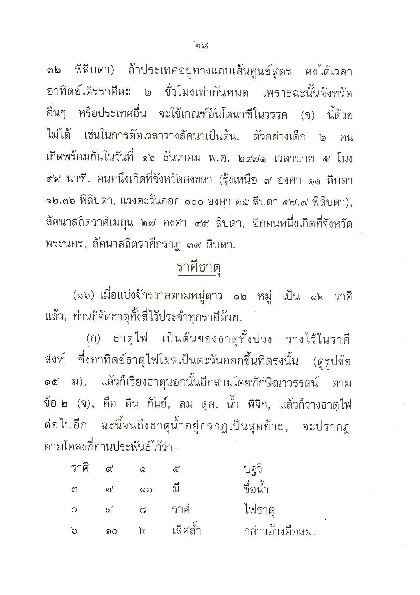 ๒๘
๓๒ พิลิบดา) ถ้าประเทศอยู่ทางแถบเส้นศูนย์สูตร คงได้เวลา
อาทิตย์เดิรราศีละ ๒ ชั่วโมงเท่ากันหมด เพราะฉะนั้นจังหวัด
อื่นๆ หรือประเทศอื่น จะใช้เกณฑ์อันโตนาทีในวรรค (จ) นี้ด้วย
ไม่ได้ เช่นในการตัดเวลาวางลัคนาเป็นต้น ตัวอย่างเด็ก ๒ คน
เกิดพร้อมกันในวันที่ ๑๖ ธันวาคม พ.ศ. ๒๔๗๑ เวลาบ่าย ๕ โมง
๕๙ นาที. คนหนึ่งเกิดที่จังหวัดสงขลา (รุ้งเหนือ ๗ องศา ๑๑ ลิบดา
๑๒.๓๖ พิลิบดา, แวงตะวันออก ๑๐๐ องศา ๓๕ ลิบดา ๕๗.๙ พิลิบดา),
ลัคนาสถิตราศีเมถุน ๒๗ องศา ๕๕ ลิบดา, อีกคนหนึ่งเกิดที่จังหวัด
พระนคร, ลัคนาสถิตราศีกรกฎ ๓๙ ลิบดา.
ราศีธาตุ
(๑๖) เมื่อแบ่งจักรวาลตามหมู่ดาว ๑๒ หมู่ เป็น ๑๒ ราศี
แล้ว, ท่านก็จัดธาตุทั้งสี่ไว้ประจำทุกราศีด้วย.
(ก) ธาตุไฟ เป็นต้นของธาตุทั้งปวง วางไว้ในราศี
สิงห์ ซึ่งอาทิตย์ธาตุไฟโผล่เป็นตะวันออกขึ้นที่ตรงนั้น (ดูรูปข้อ
๑๕ ฆ), แล้วก็เรียงธาตุนอกนั้นอีกสามโดยทักษิณาวรรตน์ ตาม
ข้อ ๒ (จ), คือ ดิน กันย์, ลม ตุล, น้ำ พิจิก, แล้วก็วางธาตุไฟ
ต่อไปอีก ฉะนี้จนถึงธาตุน้ำอยู่กรกฎเป็นสุดท้าย, จะปรากฏ
ตามโคลงที่ท่านประพันธ์ไว้ว่า–
ราศี ๙ ๑ ๕ ปฐวี
๓ ๗ ๑๑ มี ชื่อน้ำ
๐ ๔ ๘ ราศี ไฟธาตุ
๖ ๑๐ ๒ เลิศล้ำ กล่าวอ้างคือลม.